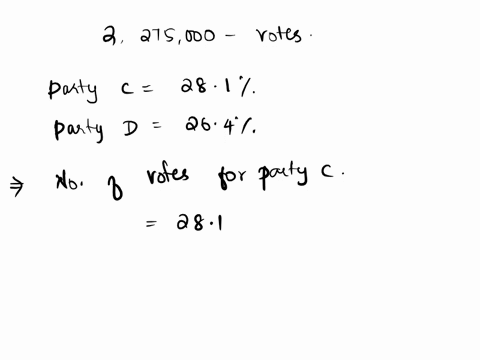 2, 275,000 - votes.
Party C = 28.1%.
Party D = 26.4%.
⇒ No. of votes for party C.
= 28.1